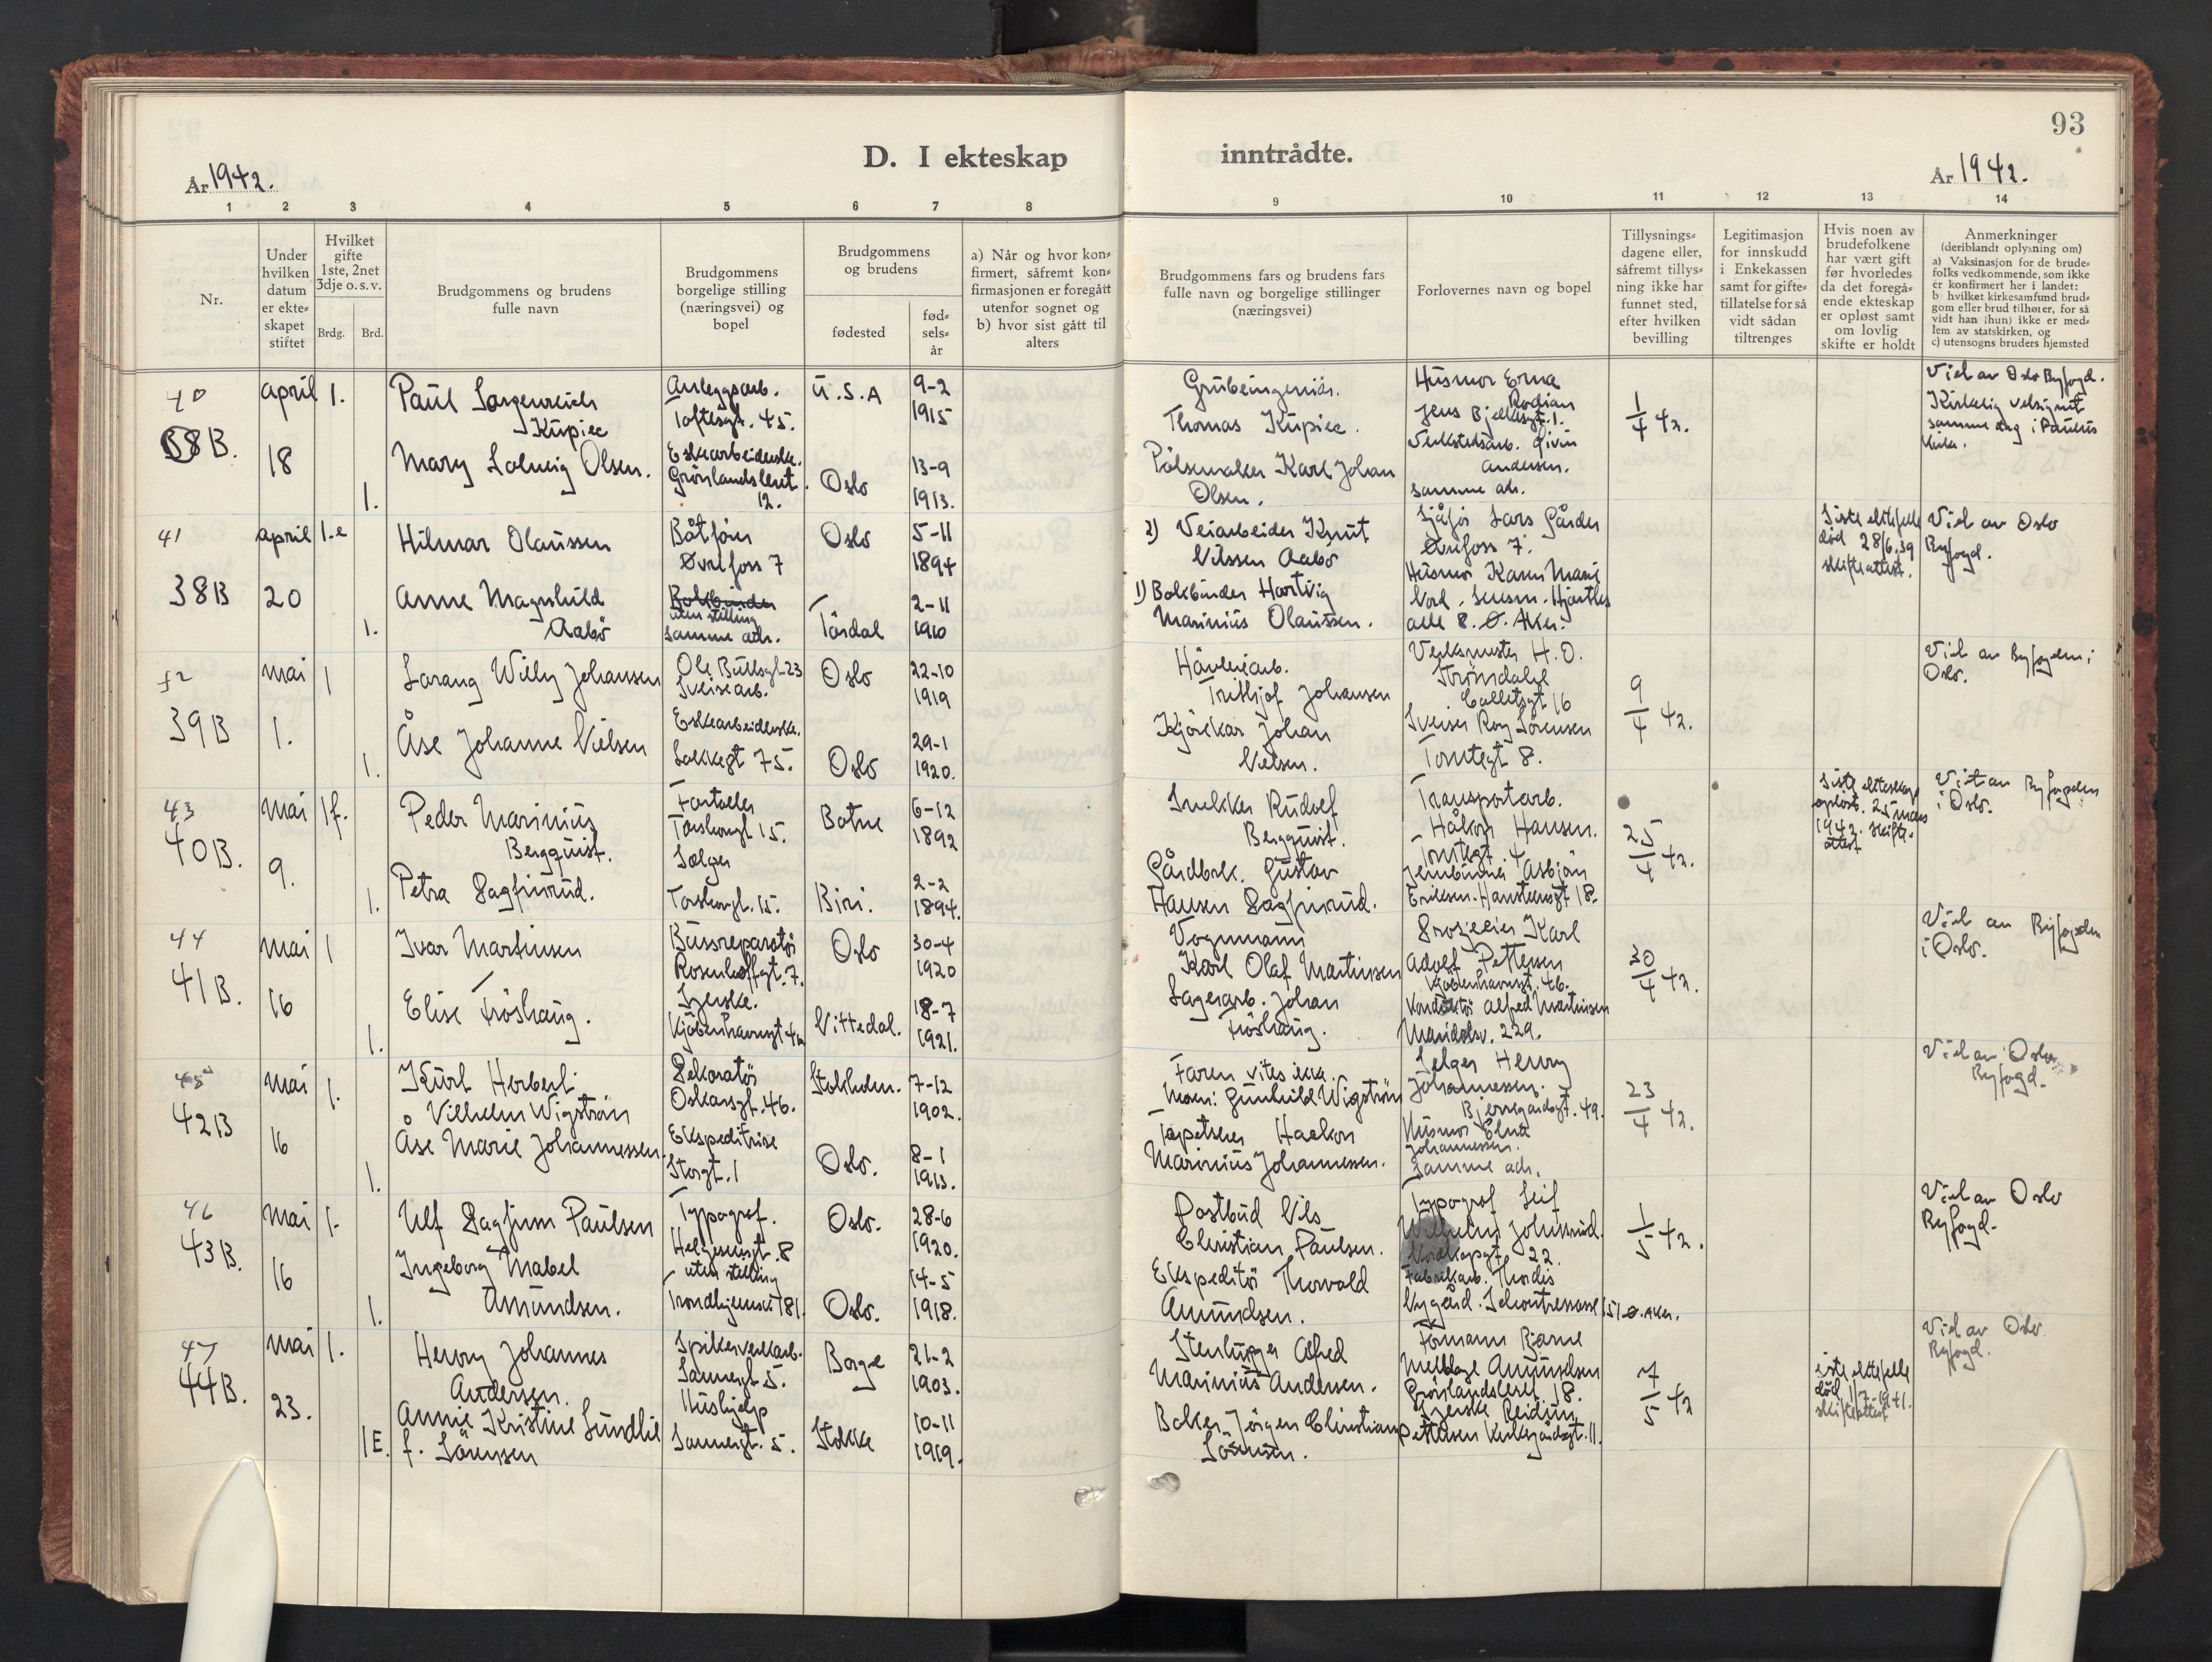 93
D. I ekteskap inntrådte.
År 1942.
År 1942.
1 2 3 4 5 6 7 8 9 10 11 12 13 14
Nr.
Under hvilken datum er ekte-skapet stiftet
Hvilket gifte 1ste, 2net 3dje o. s. v.
Brdg. Brd.
Brudgommens og brudens fulle navn
Brudgommens borgelige stilling (næringsvei) og bopel
Brudgommens og brudens
fødested
fød-sels-år
a) Når og hvor kon-firmert, såfremt kon-firmasjonen er foregått utenfor sognet og b) hvor sist gått til alters
Brudgommens fars og brudens fars fulle navn og borgelige stillinger (næringsvei)
Forlovernes navn og bopel
Tillysnings-dagene eller, såfremt tillys-ning ikke har funnet sted, efter hvilken bevilling
Legitimasjon for innskudd i Enkekassen samt for gifte-tillatelse for så vidt sådan tiltrenges
Hvis noen av brudefolkene har vært gift før hvorledes da det foregå-ende ekteskap er opløst samt om lovlig skifte er holdt
Anmerkninger (deriblandt oplysning om) a) Vaksinasjon for de brude-folks vedkommende, som ikke er konfirmert her i landet: b) hvilket kirkesamfund brud-gom eller brud tilhører, for så vidt han (hun) ikke er med-lem av statskirken, og c) utensogns bruders hjemsted
40
38B.
april
18
1.
Paul
Kupiec
Anleggsarb.
Toftesgt. 45.
U.S.A
9-2
1915
Mary Solveig Olsen.
1.
Eskearbeiderske.
Grønlandsleret
12.
Oslo
13-9
1913.
Grubeingeniør.
Thomas Kupiec.
Pølsemaker Karl Johan
Olsen.
Husmor Erna
Jens Bjelkesgt. 1.
Verkstedsarb.
Andersen.
samme adr.
1/4 42.
Viel av Oslo Byfogd.
Kirkelig velsignet
samme dag i Paulus
kirke.
41
38B
april
20
1.e
Hilmar Olaussen
Båtfører
Øvrefoss 7
Oslo
5-11
1894
Anne Magnhild
Aabø
1.
uten stilling
samme adr.
Tørdal
2-11
1910
2) Veiarbeider Knut
Nilssen Aabø
1) Bokbinder Hartvig
Marinius Olaussen.
Sjåfør Lars Gårder
Øvrefoss 7.
Husmor Karen Marie
alle 8. Ø. Aker.
Siste ektefelle
død 28/6.39
skifteattest.
Viel av Oslo
Byfogd.
42
39B
mai
1.
1
Sarang Willy Johansen
Ole Bullsgt. 23
Sveisearb.
Oslo
22-10
1919
Åse Johanne Nielsen
1.
Eskearbeiderske.
Løkkegt 75.
Oslo
29-1
1920.
Høvleriarb.
Frithjof Johansen
Kjørekar Johan
Nielsen.
Verksmester H. O.
Strømdahl
Collettsgt 16
Sveiser Roy Sørensen
Torstegt 8.
9/4 42.
Viel av Byfogden i
Oslo.
43
40B.
mai
9.
1f.
Peder Marinius
Bergquist.
Fortæller
Torshovgt. 15.
Selger
Botne
6-12
1892
Petra Dagfinrud.
1.
Torshovgt. 15.
Biri.
2-2
1894.
Snekker Rudolf
Bergquist.
Gårdbrk. Gustav
Hansen Dagfinrud.
Transportarb.
Håkon Hansen.
Torstegt. 4
Jernbinder Asbjørn
Eriksen. Hansteensgt 18.
25/4 42.
Siste ekteskap
opløst. 25 mars
1942. skifte-
attest
Viet av Byfogden
i Oslo.
44
41B.
mai
16
1
Ivar Martinsen
Bussreparatør
Rosenhoffgt. 7.
Oslo
30-4
1920
Elise Frøshaug.
1.
Syerske.
Kjøbenhavnsgt 46
Nittedal.
18-7
1921.
Vognmann
Karl Olaf Martinsen
Lagerarb. Johan
Frøshaug.
Grosjerer Karl
Adolf Pettersen
Kjøbenhavnsgt. 46.
Konduktør Alfred Martinsen
Maridalsv. 229.
20/4 42.
Viel av Byfogden
i Oslo.
45
42B
mai
16
1.
Kurt Herbert
Vilhelm Wigstrøm
Dekoratør
Oskarsgt. 46.
Stokholm.
7-12
1902.
Åse Marie Johannessen.
1.
Ekspeditrise
Storgt. 1
Oslo.
8-1
1913.
Faren vites ikke.
Moren: Gunhild Wigstrøm
Tapetserer Haakon
Marinius Johannessen.
Selger Henry
Johannessen.
Bjerregårdsgt. 49.
Husmor
Johannessen.
Samme adr.
23/4 42.
Viel av Oslo
Byfogd.
46
43B.
mai
16
1.
Ulf Dagfinn Paulsen
Typograf.
Helgesensgt. 8
Oslo.
28-6
1920.
Ingeborg Mabel
Amundsen.
1.
uten stilling
Trondhjemsvei 181.
Oslo.
14-5
1918.
Postbud Nils
Christian Paulsen.
Ekspeditør Thorvald
Amundsen.
Typograf Leif
Wilhelm Johnsrud.
Nordkapgt. 22.
Fabrikarb. Thordis
Nygård. 151 Ø. Aker.
1/5 42.
Viel av Oslo
Byfogd.
47
44B.
mai
23.
1.
Henry Johannes
Andersen.
Spikerverkarb.
Sannergt. 5.
Borge
21-2
1903.
Annie Kristine Sundlie
f. Sörensen
1E.
Hushjelp
Sannergt. 5.
Stokke
10-11
1919.
Stenhugger Alfred
Marinius Andersen.
Baker Jørgen Christian
Sörensen.
Formann Bjarne
Amundsen
Grønlandsleret 18.
Syerske Reidun
Pettersen Kirkegårdsgt. 11.
7/5 42
siste ektefelle
død 1/7-1941.
skifteattest
Viel av Oslo
Byfogd.